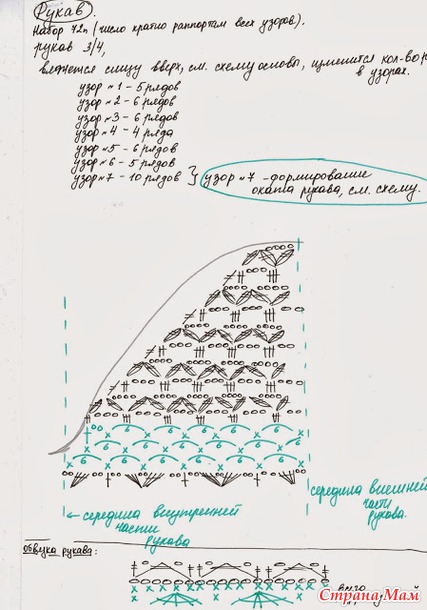 Рукав.
Набор 72п. (число кратно раппортам всех узоров).
рукав 3/4,
вяжется снизу вверх, см. схему основы, изменится кол-во р
в узорах.
узор №1 - 5 рядов
узор №2 - 6 рядов
узор №3 - 6 рядов
узор №4 - 4 ряда
узор №5 - 6 рядов
узор №6 - 5 рядов
узор №7 - 10 рядов } узор №7 - формирование
оката рукава, см. схему.
середина внешней
части
рукава.
← середина внутренней
части
рукава
обвязка рукава:
СтранаМам